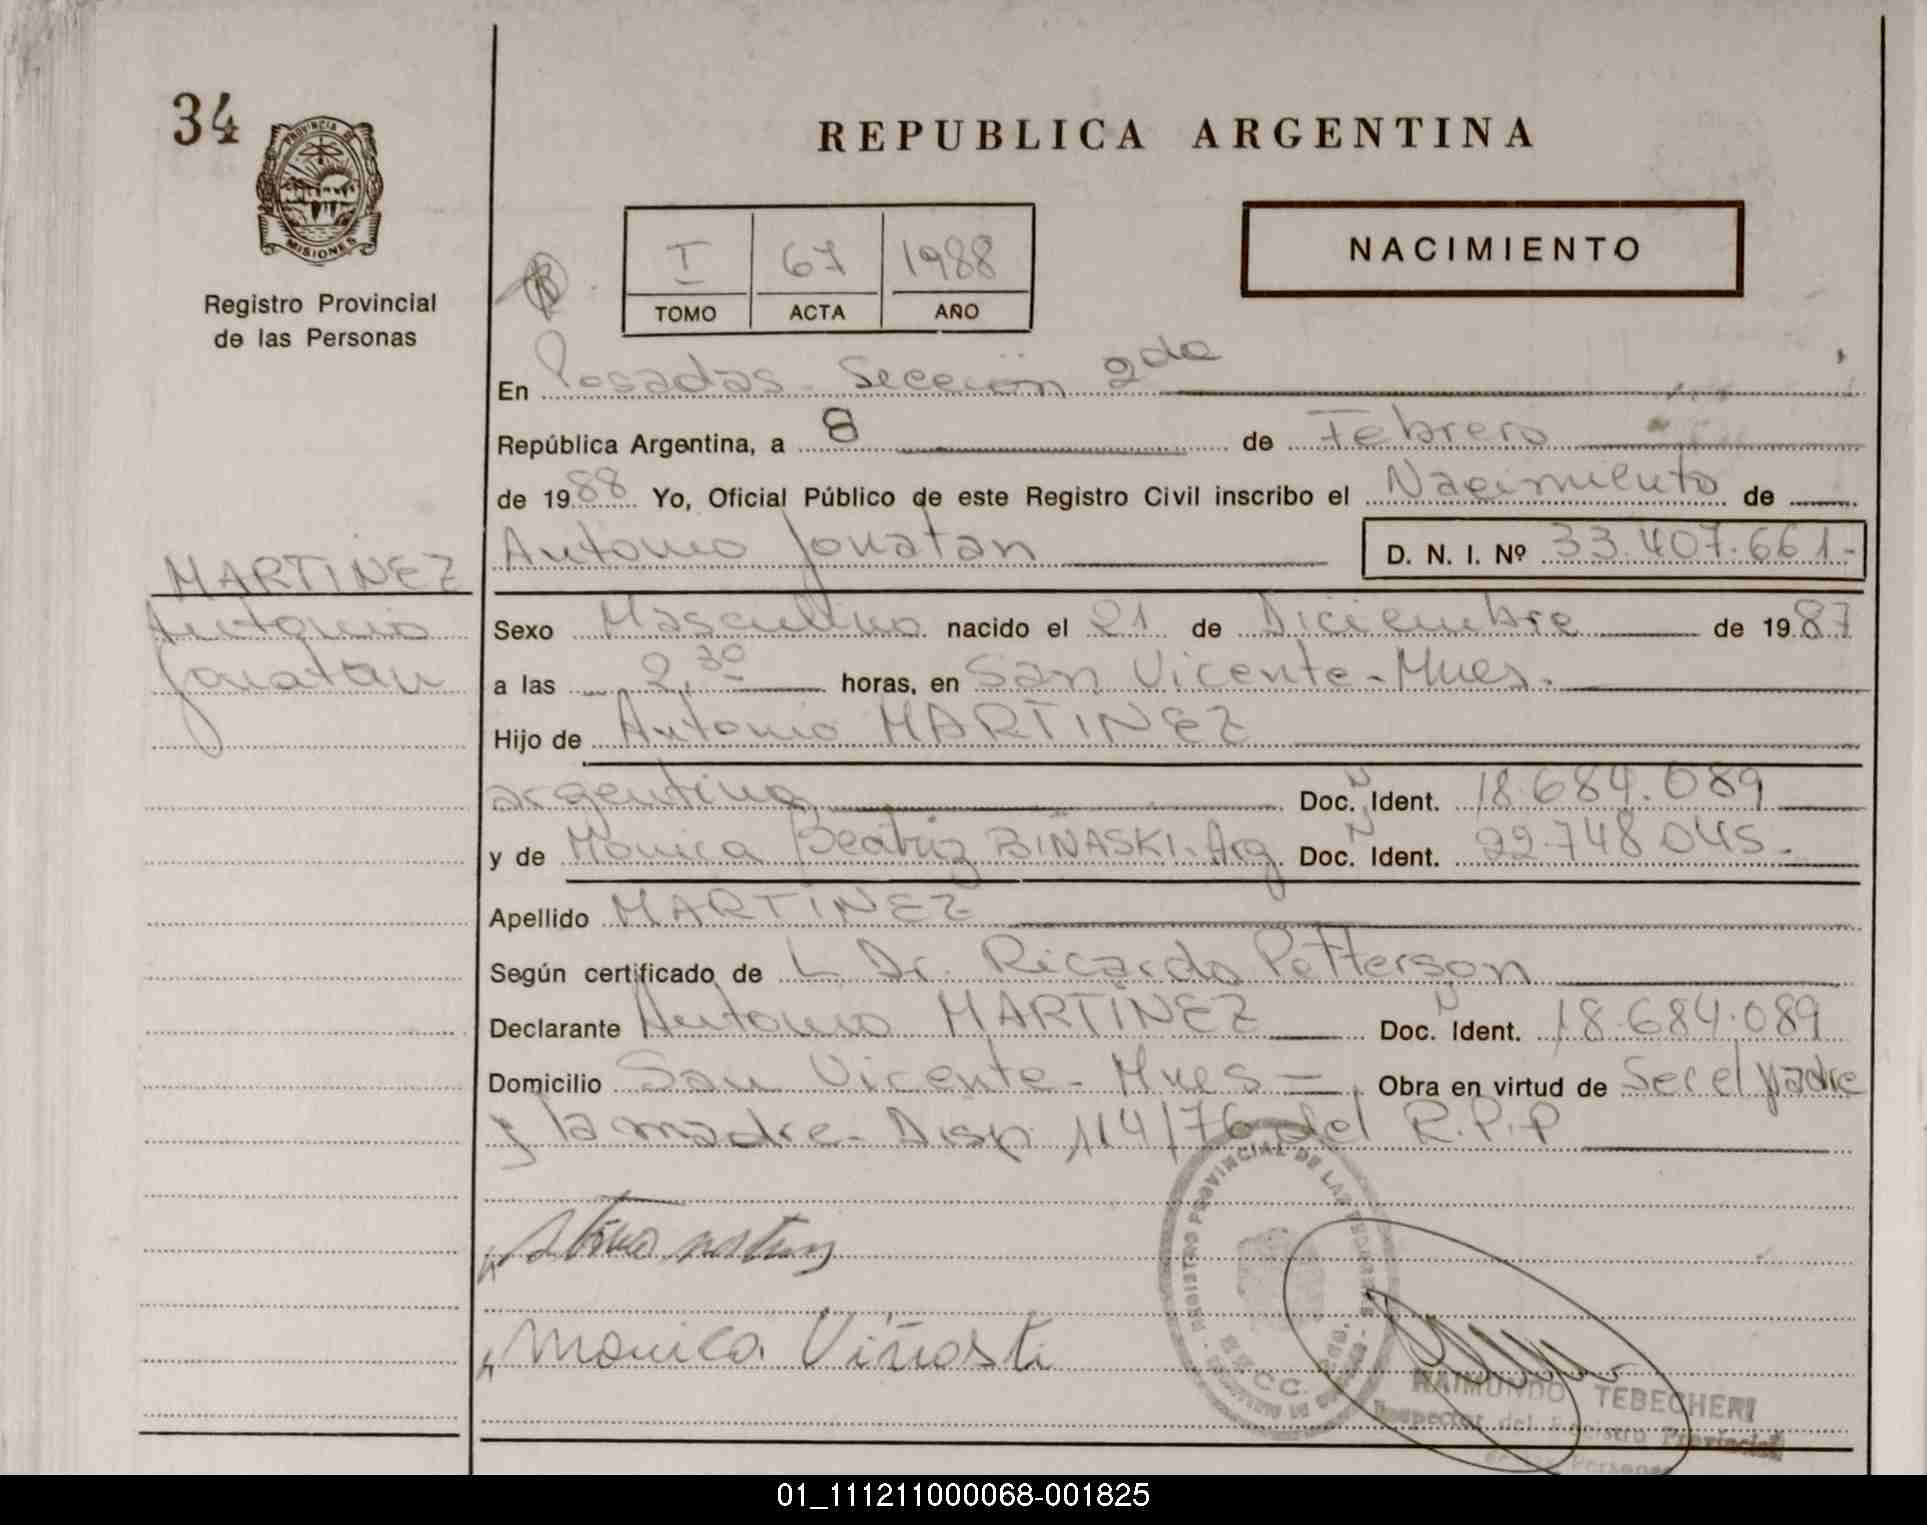 34
PROVINCIA DE
MISIONES
Registro Provincial
de las Personas
REPUBLICA ARGENTINA
I 67 1988
TOMO ACTA AÑO
NACIMIENTO
En Posadas - Sección 2da
República Argentina, a 8 de Febrero
de 1988 Yo, Oficial Público de este Registro Civil inscribo el Nacimiento de
Antonio Jonatan D. N. I. Nº 33.407.661.-
MARTINEZ
Antonio
Jonatan
Sexo Masculino nacido el 21 de Diciembre de 1987
a las 2,30 horas, en San Vicente - Mnes.
Hijo de Antonio MARTINEZ
argentino Doc. N Ident. 18.684.089
y de Mónica Beatriz BIÑASKI - Arg. Doc. N Ident. 22.748.045.-
Apellido MARTINEZ
Según certificado de L Dr. Ricardo Petterson
Declarante Antonio MARTINEZ Doc. N Ident. 18.684.089
Domicilio San Vicente - Mnes = Obra en virtud de Ser el padre
y la madre - Disp. 114/76 del R.P.P
Monica Viñasti
REGISTRO PROVINCIAL DE LAS PERSONAS
RAIMUNDO TEBECHERI
Inspector del Registro Provincial
de las Personas
01_111211000068-001825